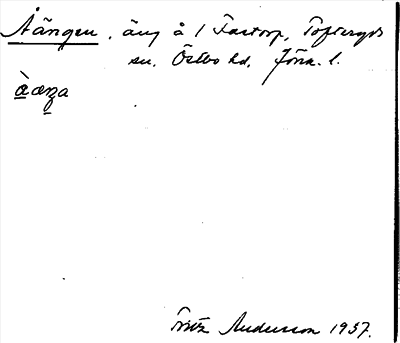 Åängen, äng å 1 Fastorp, Tofteryds
sn. Östbo hd, Jönk. l.
àæŋa
Fritz Andersson 1937.